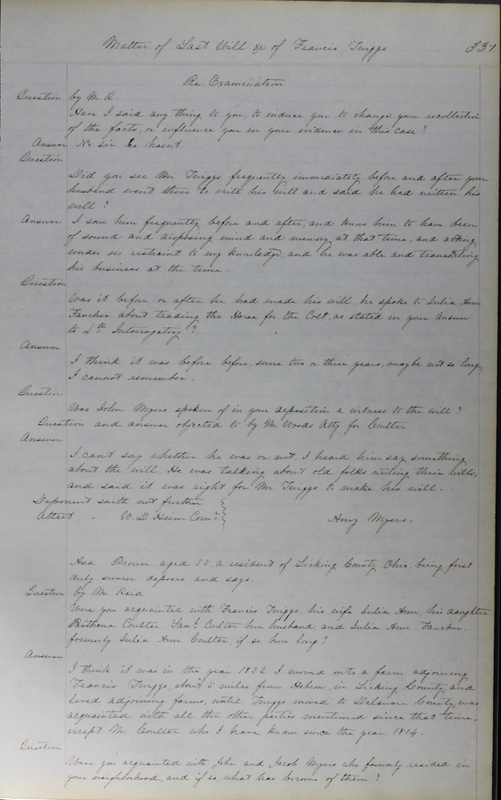 Matter of Last Will &c of Francis Twiggs 331
Re Examination
Question by Mr R.
Have I said any thing to you, to induce you to change your recollection
of the facts, or influence you in your evidence in this case?
Answer No Sir he hasn't.
Question
Did you see Mr Twiggs frequently immediately before and after your
husband went there to write his will and said he had written his
will?
Answer I saw him frequently before and after, and knew him to have been
of sound and disposing mind and memory at that time, and acting
under no restraint to my knowledge, and he was able and transacting
his business at the time.
Question
Was it before or after he had made his will, he spoke to Julia Ann
Fancher about trading the Horse for the Colt, as stated in your answer
to 4th Interrogatory?
Answer
I think it was before before, some two or three years, maybe not so long,
I cannot remember.
Question
Was John Myers spoken of in your deposition a witness to the will?
Question and answer objected to by Mr Woods Atty for Coulter
Answer
I can't say whether he was or not, I heard him say something
about the will. He was talking about old folks willing their wills,
and said it was right for Mr Twiggs to make his will.
Deponent saith not further
Attest - W. D. Heim Comr Amy Myers.
Asa Brown, aged 55 a resident of Licking County Ohio being first
duly sworn deposes and says.
Question by Mr Reid
Were you acquainted with Francis Twiggs, his wife Julia Ann, his daughter
Coulter, Saml Coulter her husband, and Julia Ann Fancher
formerly Julia Ann Coulter, if so, how long?
Answer
I think it was in the year 1832 I moved onto a farm adjoining
Francis Twiggs, about 5 miles from Hebron, in Licking County, and
lived adjoining farms, until Twiggs moved to Delaware County, was
acquainted with all the other parties mentioned since that time,
except Mr Coulter who I have known since the year 1814.
Question
Were you acquainted with John and Jacob Myers who formerly resided in
your neighborhood, and if so, what has become of them?